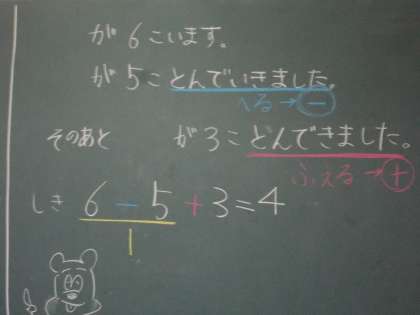 が6こいます。
が5ことんでいきました。
へる→－
そのあと が3ことんできました。
ふえる→＋
しき 6－5＋3＝4
1